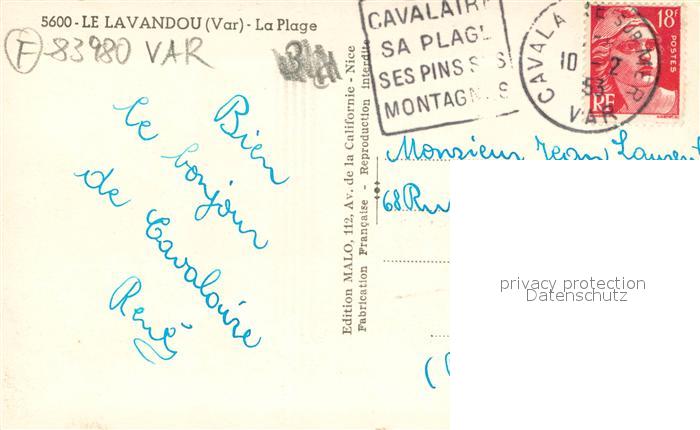 5600 - LE LAVANDOU (Var) - La Plage
F - 83980 VAR
Bien
le bonjour
de Cavalaire
René
Edition MALO, 112, Av. de la Californie - Nice
Fabrication Française - Reproduction interdite
CAVALAIRE
SA PLAGE
SES PINS SES
MONTAGNES
CAVALAIRE SUR MER
10 - 2
53
VAR
18F
POSTES
RF
Monsieur Jean Laurent
68 Ru
(
privacy protection
Datenschutz